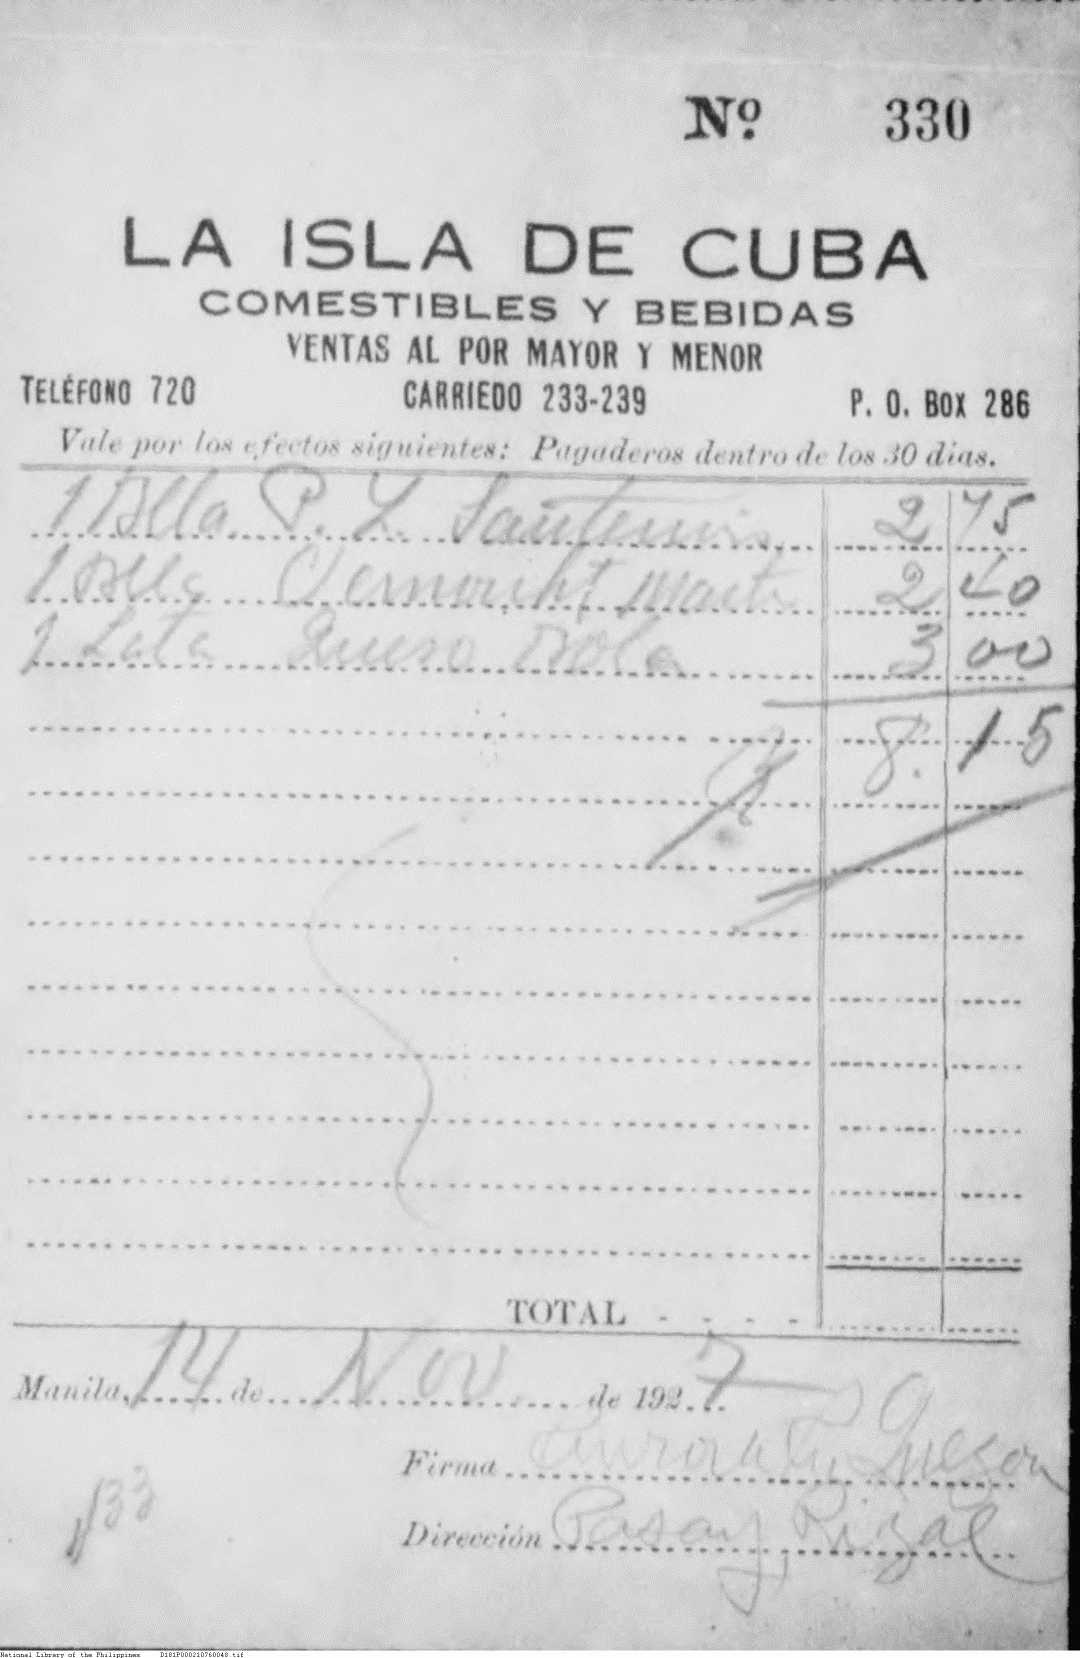 Nº 330
LA ISLA DE CUBA
COMESTIBLES Y BEBIDAS
VENTAS AL POR MAYOR Y MENOR
TELÉFONO 720 CARRIEDO 233-239 P. O. BOX 286
Vale por los efectos siguientes: Pagaderos dentro de los 30 dias.
1 Blla P. L. 2 75
1 Blla 2 40
1 Lata Queso Bola 3 00
8.15
TOTAL
Manila, 14 de Nov. de 1927
Firma Aurora Quezon
Dirección Pasay, Rizal
133
National Library of the Philippines D181P000210760048.tif